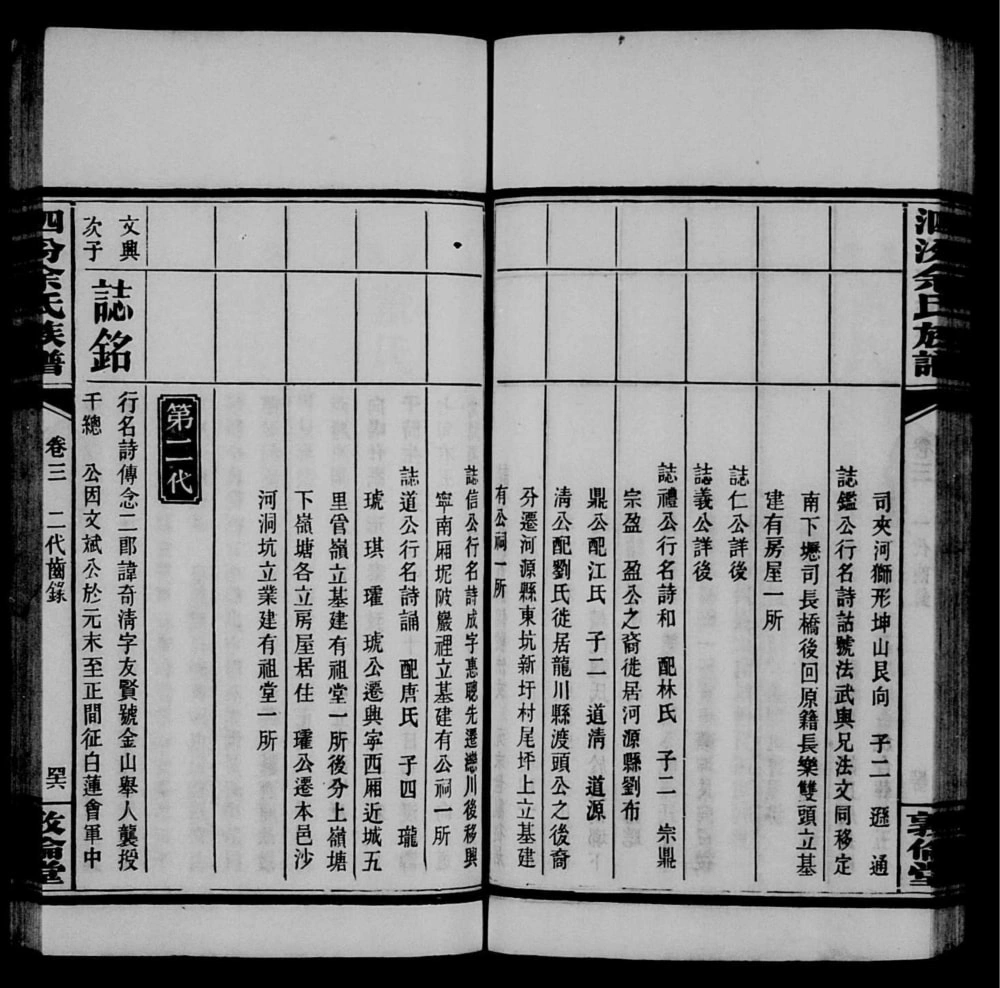 泗汾余氏族譜
敦倫堂
司夾河獅形坤山艮向 子二 遜 通
誌鑑公行名詩詁號法武與兄法文同移定
南下壢司長橋後回原籍長樂雙頭立基
建有房屋一所
誌仁公詳後
誌義公詳後
誌禮公行名詩和 配林氏 子二 宗鼎
宗盈 盈公之裔徙居河源縣劉布
鼎公配江氏 子二 道清 道源
清公配劉氏徙居龍川縣渡頭公之後裔
分遷河源縣東坑新圩村尾坪上立基建
有公祠一所
誌信公行名詩成字惠聰先遷潮川後移興
寧南廂坭陂巖裡立基建有公祠一所
誌道公行名詩誦 配唐氏 子四 瓏
琥 琪 瓘 琥公遷興寧西廂近城五
里官嶺立基建有祖堂一所後分上嶺塘
下嶺塘各立房屋居住 瓘公遷本邑沙
河洞坑立業建有祖堂一所
第二代
文興
次子
誌銘
行名詩傳念二郎諱奇清字友賢號金山舉人襲授
千總 公因文斌公於元末至正間征白蓮會軍中
四份余氏族譜
卷三 二代齒錄
敦倫堂